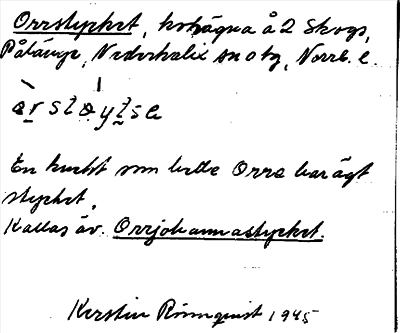 Orrstycket, hohägna å 2 Skogs,
Pålänge, Nederkalix sn o tg, Norrb. l.
En kucht som hette Orre har ägt
stycket.
Kallas äv. Orrjohannastycket.
Kerstin Rönnquist 1945